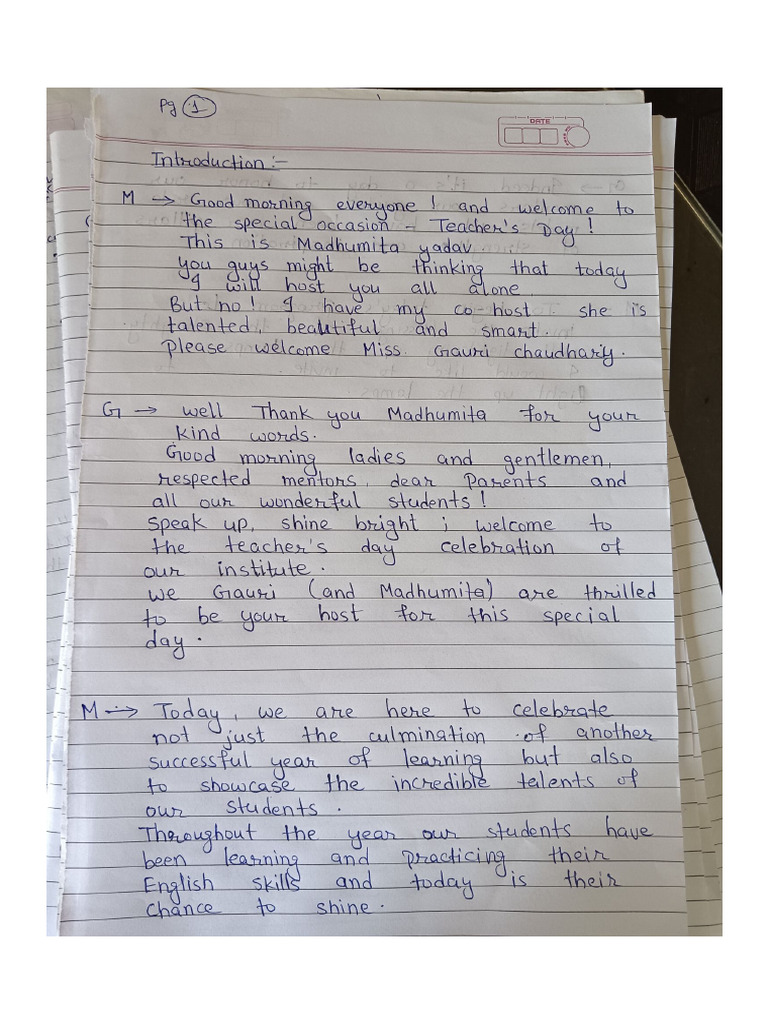 Pg 1
DATE
Introduction :-
M → Good morning everyone ! and welcome to
the special occasion - Teacher's Day !
This is Madhumita yadav.
you guys might be thinking that today
I will host you all alone
But no ! I have my co host. she is
talented, beautiful and smart.
please welcome Miss. Gauri chaudhary.
G → well Thank you Madhumita for your
kind words.
Good morning ladies and gentlemen,
respected mentors, dear Parents and
all our wonderful students !
speak up, shine bright ; welcome to
the teacher's day celebration of
our institute.
we Gauri (and Madhumita) are thrilled
to be your host for this special
day.
M → Today, we are here to celebrate
not just the culmination of another
successful year of learning but also
to showcase the incredible talents of
our students.
Throughout the year our students have
been learning and practicing their
English skills and today is their
chance to shine.